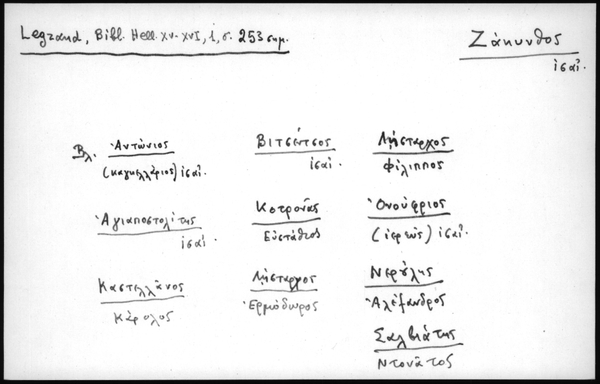 Legrand, Bibl. Hell. XV-XVI, 1, σ. 253 σημ.
Ζάκυνθος
ιςαῖ.
Βλ. Ἀντώνιος
(καγκελλάριος) ιςαῖ.
Ἁγιαποστολίτης
ιςαῖ.
Καστελλᾶνος
Κάρολος
Βιτσέντσος
ιςαῖ.
Κοτρονᾶς
Εὐστάθιος
Λῄσταρχος
Ἑρμόδωρος
Λῄσταρχος
Φίλιππος
Ὀνούφριος
(ἱερεὺς) ιςαῖ.
Νερούλης
Ἀλέξανδρος
Σαλβιάτης
Ντονᾶτος